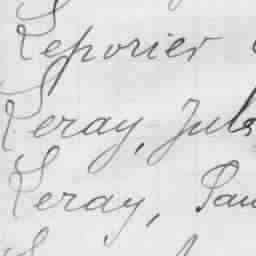 Leporier
Leray, Jul
Leray, Pau